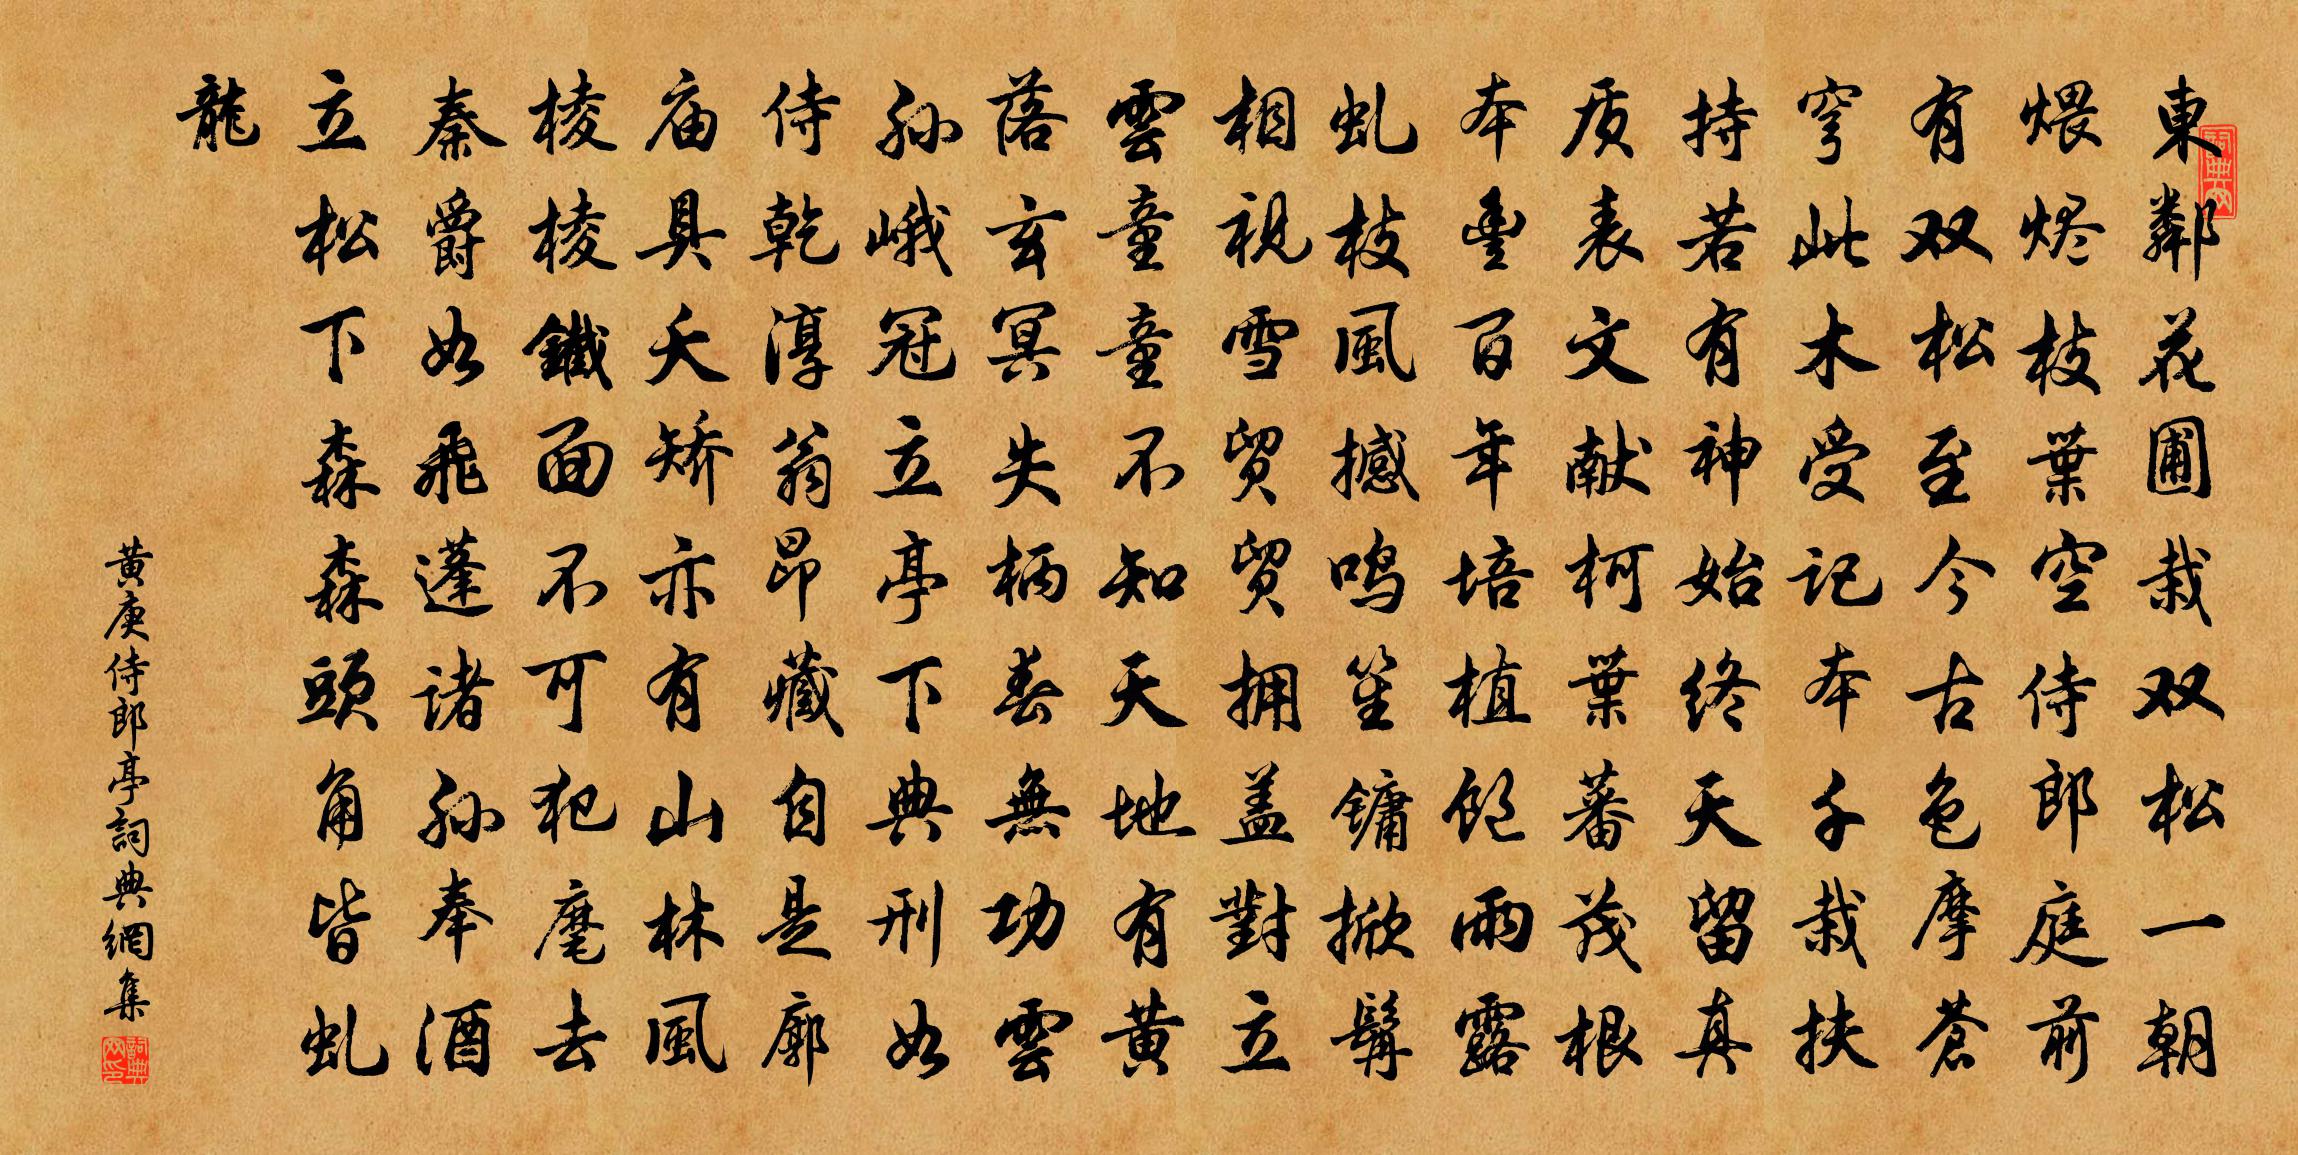 東鄰花圃栽双松一朝
煨烬枝葉空侍郎庭前
有双松至今古色摩蒼
穹此木受记本千栽扶
持若有神始终天留真
质表文献柯葉蕃茂根
本豊百年培植飽雨露
虬枝風撼鸣笙镛掀髯
相視雪贸贸拥盖對立
雲童童不知天地有黄
落玄冥失柄春無功雲
孙峨冠立亭下典刑如
侍乾淳翁昂藏自是廓
庙具夭矫亦有山林風
棱棱鐵面不可犯麾去
秦爵如飛蓬诸孙奉酒
立松下森森頭角皆虬
龍
黄庚侍郎亭詞典網集
詞典网
詞典网印